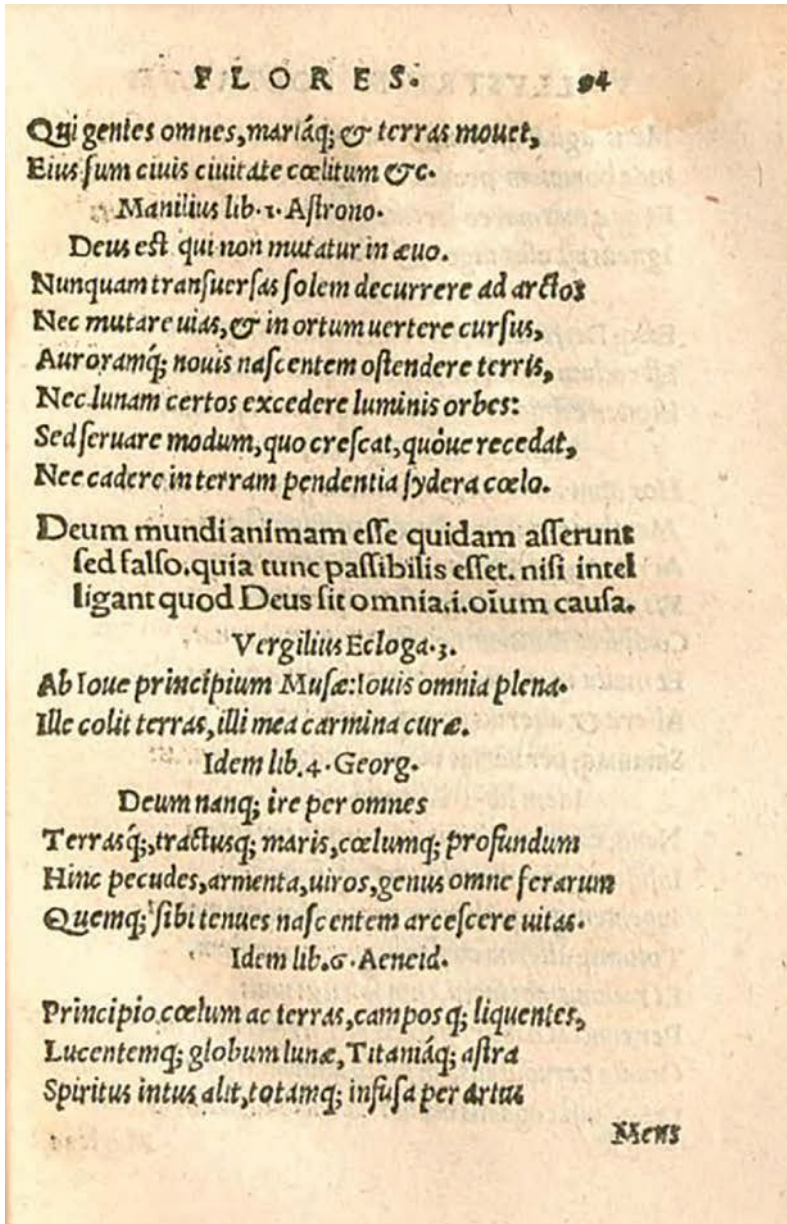 FLORES. 94
Qui gentes omnes, mariáq; & terras mouet,
Eius sum ciuis ciuitate cœlitum &c.
Manilius lib. 1. Astrono.
Deus est qui non mutatur in æuo.
Nunquam transuersas solem decurrere ad arctos
Nec mutare uias, & in ortum uertere cursus,
Auroramq́; nouis nascentem ostendere terris,
Nec lunam certos excedere luminis orbes:
Sed seruare modum, quo crescat, quóue recedat,
Nec cadere in terram pendentia sydera cœlo.
Deum mundi animam esse quidam asserunt
sed falso. quia tunc passibilis esset. nisi intel
ligant quod Deus sit omnia .i. oīum causa.
Vergilius Ecloga. 3.
Ab Ioue principium Musæ: Iouis omnia plena.
Ille colit terras, illi mea carmina curæ.
Idem lib. 4. Georg.
Deum nanq; ire per omnes
Terrasq́;, tractusq; maris, cœlumq; profundum
Hinc pecudes, armenta, uiros, genus omne ferarum
Quemq; sibi tenues nascentem arcescere uitas.
Idem lib. 6. Aeneid.
Principio cœlum ac terras, camposq; liquentes,
Lucentemq; globum lunæ, Titaniáq; astra
Spiritus intus alit, totamq; infusa per artus
Mens